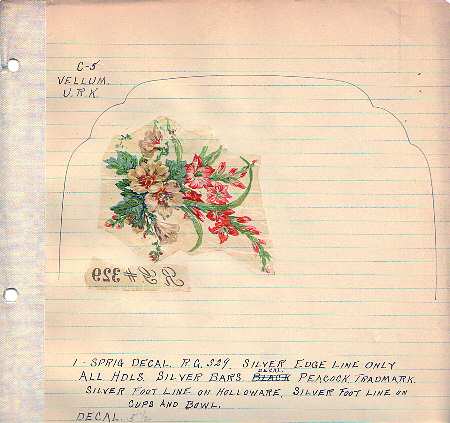 C-5
VELLUM.
U.R.K.
R G # 329
1 - SPRIG DECAL. R.G. 329 SILVER EDGE LINE ONLY
ALL HDLS. SILVER BARS BLACK DECAL. PEACOCK TRADMARK.
SILVER FOOT LINE ON HOLLOWARE, SILVER FOOT LINE ON
CUPS AND BOWL.
DECAL